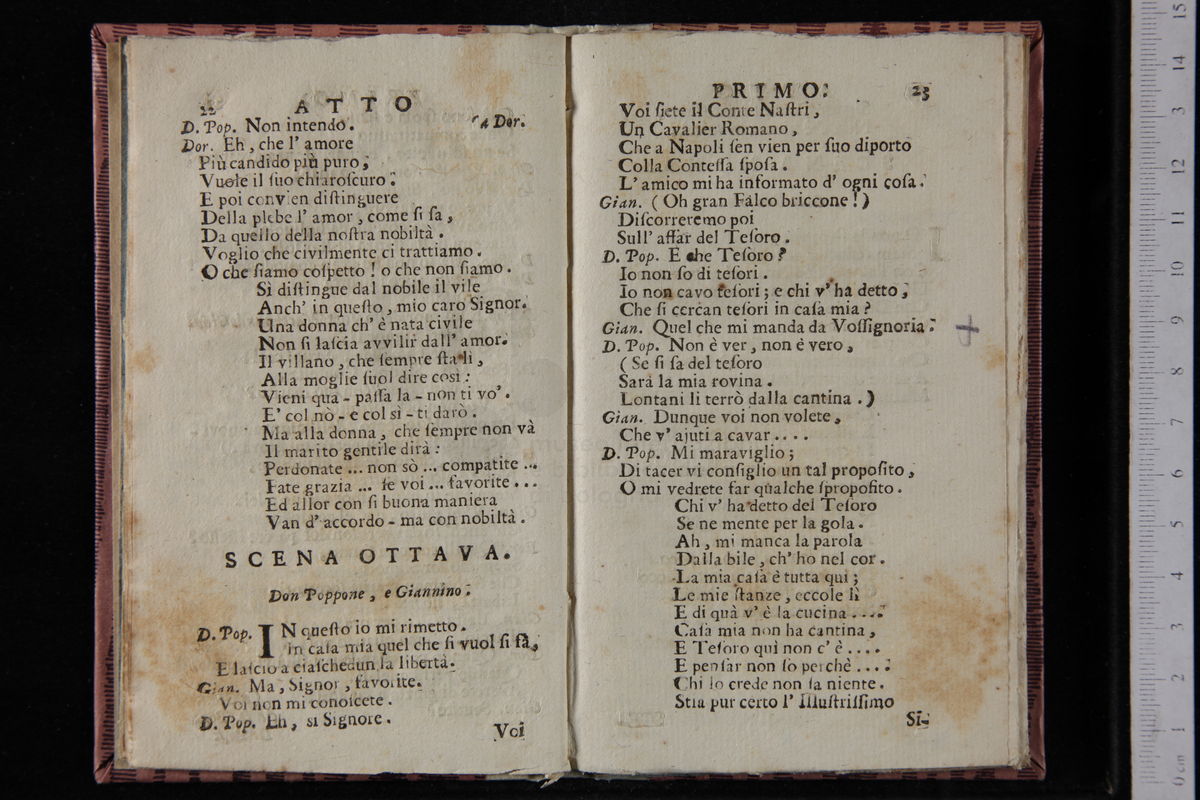 22 ATTO
D. Pop. Non intendo. a Dor.
Dor. Eh, che l' amore
Più candido più puro,
Vuole il ſuo chiaroſcuro.
E poi convien diſtinguere
Della plebe l' amor, come ſi ſa,
Da quello della noſtra nobiltà.
Voglio che civilmente ci trattiamo.
O che ſiamo coſpetto! o che non ſiamo.
Sì diſtingue dal nobile il vile
Anch' in queſto, mio caro Signor.
Una donna ch' è nata civile
Non ſi laſcia avvilir dall' amor.
Il villano, che ſempre ſta lì,
Alla moglie ſuol dire così:
Vieni qua - paſſa la - non ti vo'.
E' col nò - e col sì - ti darò.
Ma alla donna, che ſempre non và
Il marito gentile dirà:
Perdonate ... non sò ... compatite ...
Fate grazia ... ſe voi ... favorite ...
Ed allor con ſi buona maniera
Van d' accordo - ma con nobiltà.
SCENA OTTAVA.
Don Poppone, e Giannino.
D. Pop. IN queſto io mi rimetto.
In caſa mia quel che ſi vuol ſi fà,
E laſcio a ciaſchedun la libertà.
Gian. Ma, Signor, favorite.
Voi non mi conoſcete.
D. Pop. Eh, sì Signore.
Voi
PRIMO. 23
Voi ſiete il Conte Naſtri,
Un Cavalier Romano,
Che a Napoli ſen vien per ſuo diporto
Colla Conteſſa ſpoſa.
L' amico mi ha informato d' ogni coſa.
Gian. (Oh gran Falco briccone!)
Diſcorreremo poi
Sull' affar del Teſoro.
D. Pop. E che Teſoro?
Io non ſo di teſori.
Io non cavo teſori; e chi v' ha detto,
Che ſi cercan teſori in caſa mia?
Gian. Quel che mi manda da Voſſignoria.
D. Pop. Non è ver, non è vero,
(Se ſi ſa del teſoro
Sarà la mia rovina.
Lontani li terrò dalla cantina.)
Gian. Dunque voi non volete,
Che v' ajuti a cavar....
D. Pop. Mi maraviglio;
Di tacer vi conſiglio un tal propoſito,
O mi vedrete far qualche ſpropoſito.
Chi v' ha detto del Teſoro
Se ne mente per la gola.
Ah, mi manca la parola
Dalla bile, ch' ho nel cor.
La mia caſa è tutta qui;
Le mie ſtanze, eccole lì
E di quà v' è la cucina ....
Caſa mia non ha cantina,
E Teſoro quì non c' è ....
E penſar non ſo perchè ....
Chi lo crede non ſa niente.
Stia pur certo l' Illuſtriſſimo
Si-
0 cm 1 2 3 4 5 6 7 8 9 10 11 12 13 14 15